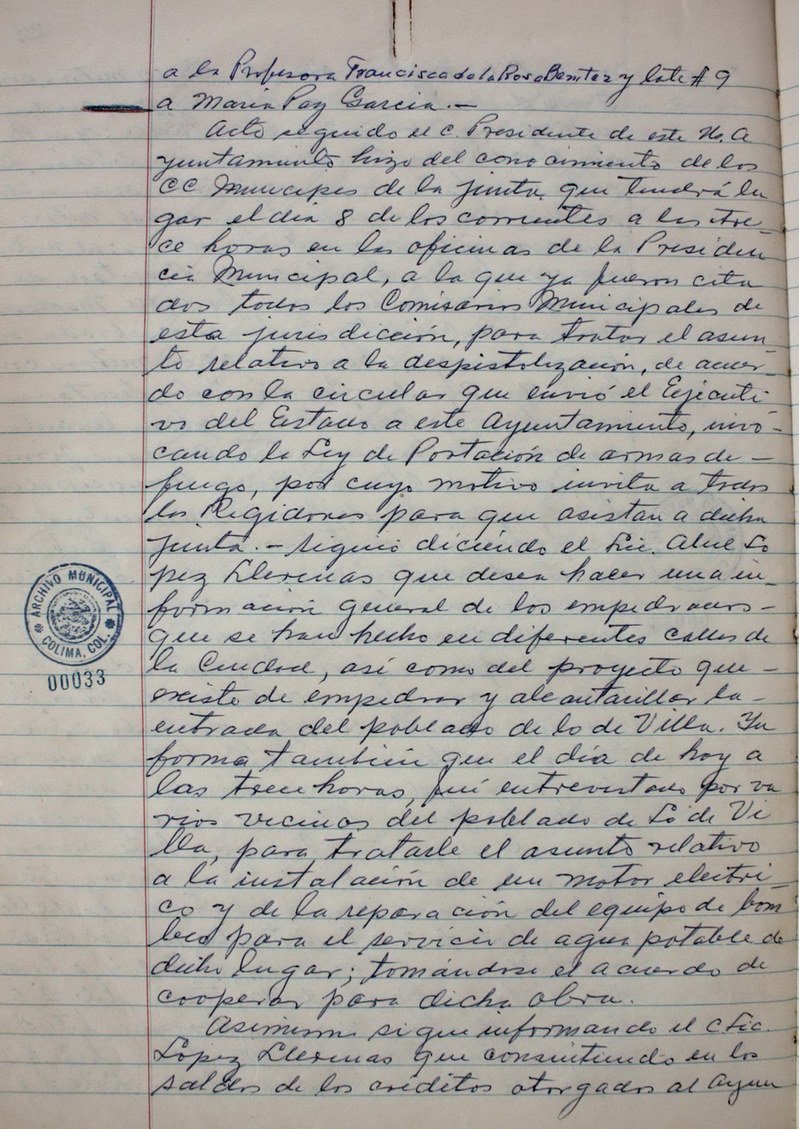 a la Profesora Francisca de la Rosa Benitez y lote # 9
a Maria Paz Garcia.—
Acto seguido el C. Presidente de este H. A
yuntamiento hizo del conocimiento de los
CC Municipes de la junta que tendrá lu
gar el dia 8 de los corrientes a las tre-
ce horas en las oficinas de la Presiden
cia Municipal, a la que ya fueron cita
dos todos los Comisarios Municipales de
esta jurisdicción, para tratar el asun
to relativo a la despistolización, de acuer-
do con la circular que envió el Ejecuti
vo del Estado a este Ayuntamiento, invo-
cando la Ley de Portación de armas de-
fuego, por cuyo motivo invita a todos
los Regidores para que asistan a dicha
junta.— Siguio diciendo el Lic. Abel Lo
pez Llerenas que desea hacer una in-
formación general de los empedrados-
que se han hecho en diferentes calles de
la Ciudad, así como del proyecto que-
existe de empedrar y alcantarillar la-
entrada del poblado de lo de Villa. In
forma también que el día de hoy a
las trece horas, fui entrevistado por va
rios vecinos del poblado de Lo de Vi
lla, para tratarle el asunto relativo
a la instalación de un motor electri-
co y de la reparación del equipo de bom
beo para el servicio de agua potable de
dicho lugar; tomándose el acuerdo de
cooperar para dicha obra.
Asimismo sigue informando el C Lic.
López Llerenas que consintiendo en los
saldos de los créditos otorgados al Ayun
ARCHIVO MUNICIPAL
COLIMA, COL.
00033